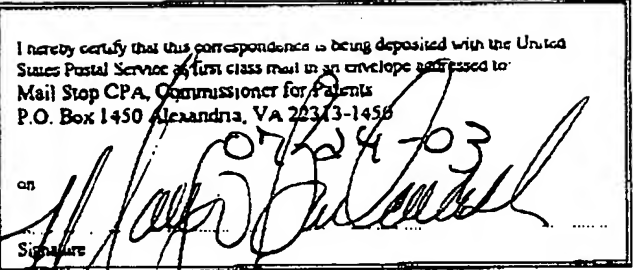 I hereby certify that this correspondence is being deposited with the United
States Postal Service as first class mail in an envelope addressed to:
Mail Stop CPA, Commissioner for Patents
P.O. Box 1450 Alexandria, VA 22313-1450
07-24-03
on
Signature